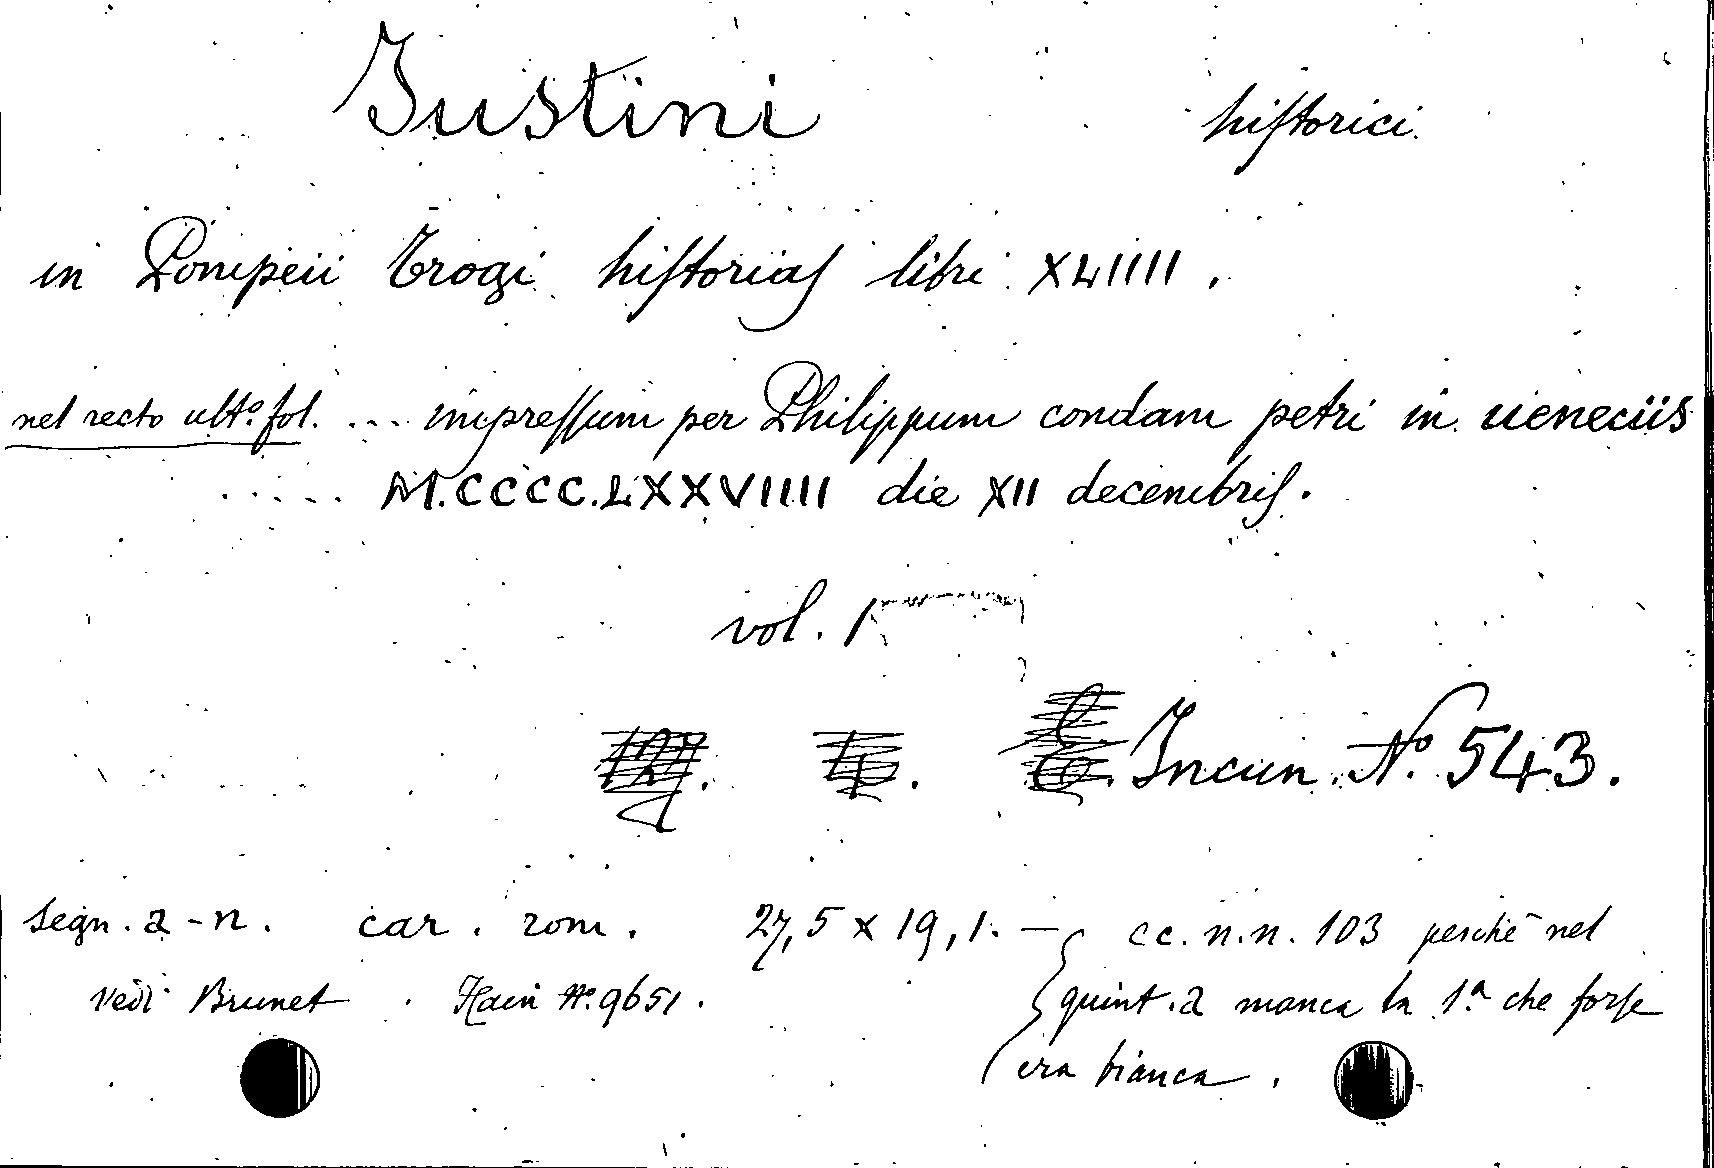 Justini historici
in Pompeii Trogi hiſtoriaſ libri XLIIII.
nel recto ult.º fol. ... impreſſum per Philippum condam petri in ueneciis
..... M.CCCC.LXXVIIII die XII decembriſ.
vol. 1
Incun. Nº. 543.
segn. a-n. car. rom. 27,5 x 19,1. — cc. n.n. 103 perchè nel
Vedi Brunet. Hain Nº. 9651. quint. a manca la 1.ª che forse
era bianca.